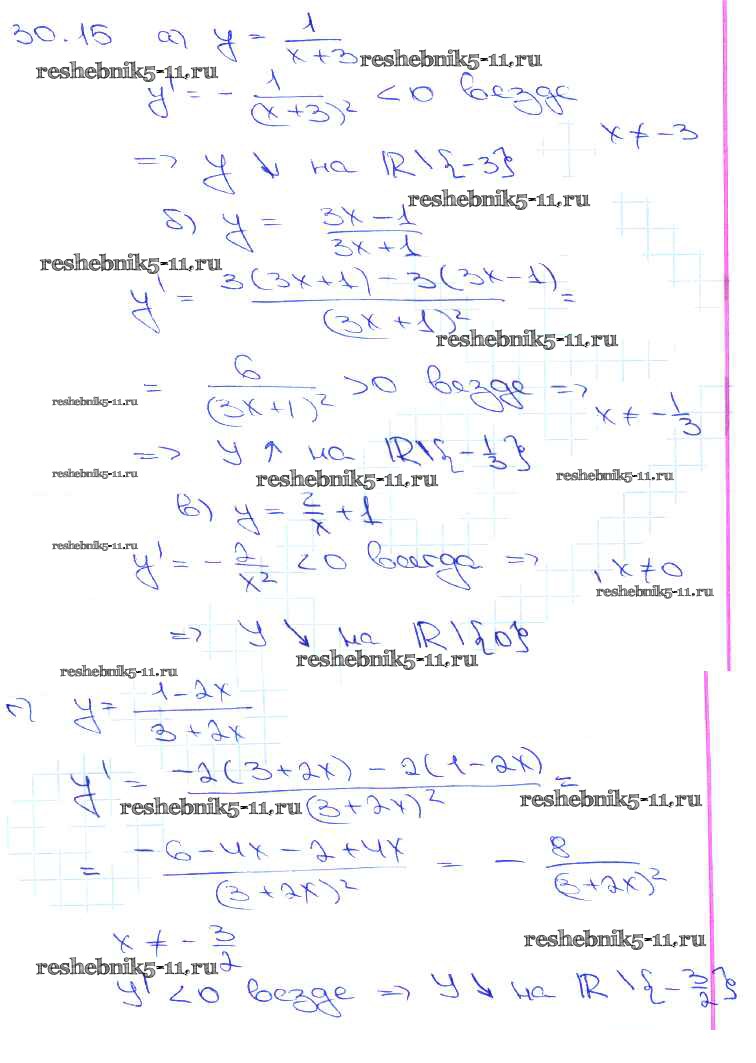 30.15 а) y = 1/(x+3)
reshebnik5-11.ru reshebnik5-11.ru
y' = - 1/(x+3)² <0 везде
x ≠ -3
=> y ↓ на ℝ\{-3}
reshebnik5-11.ru
б) y = (3x-1)/(3x+1)
reshebnik5-11.ru
y' = (3(3x+1)-3(3x-1))/(3x+1)² =
reshebnik5-11.ru
= 6/(3x+1)² >0 везде =>
reshebnik5-11.ru
x ≠ -1/3
=> y ↑ на ℝ\{-1/3}
reshebnik5-11.ru reshebnik5-11.ru reshebnik5-11.ru
в) y = 2/x + 1
reshebnik5-11.ru
y' = - 2/x² <0 всегда =>
, x ≠ 0
reshebnik5-11.ru
=> y ↓ на ℝ\{0}
reshebnik5-11.ru
reshebnik5-11.ru
г) y = (1-2x)/(3+2x)
y' = (-2(3+2x)-2(1-2x))/(3+2x)² =
reshebnik5-11.ru reshebnik5-11.ru
= (-6-4x-2+4x)/(3+2x)² = - 8/(3+2x)²
x ≠ - 3/2
reshebnik5-11.ru
reshebnik5-11.ru
y' <0 везде => y ↓ на ℝ\{-3/2}